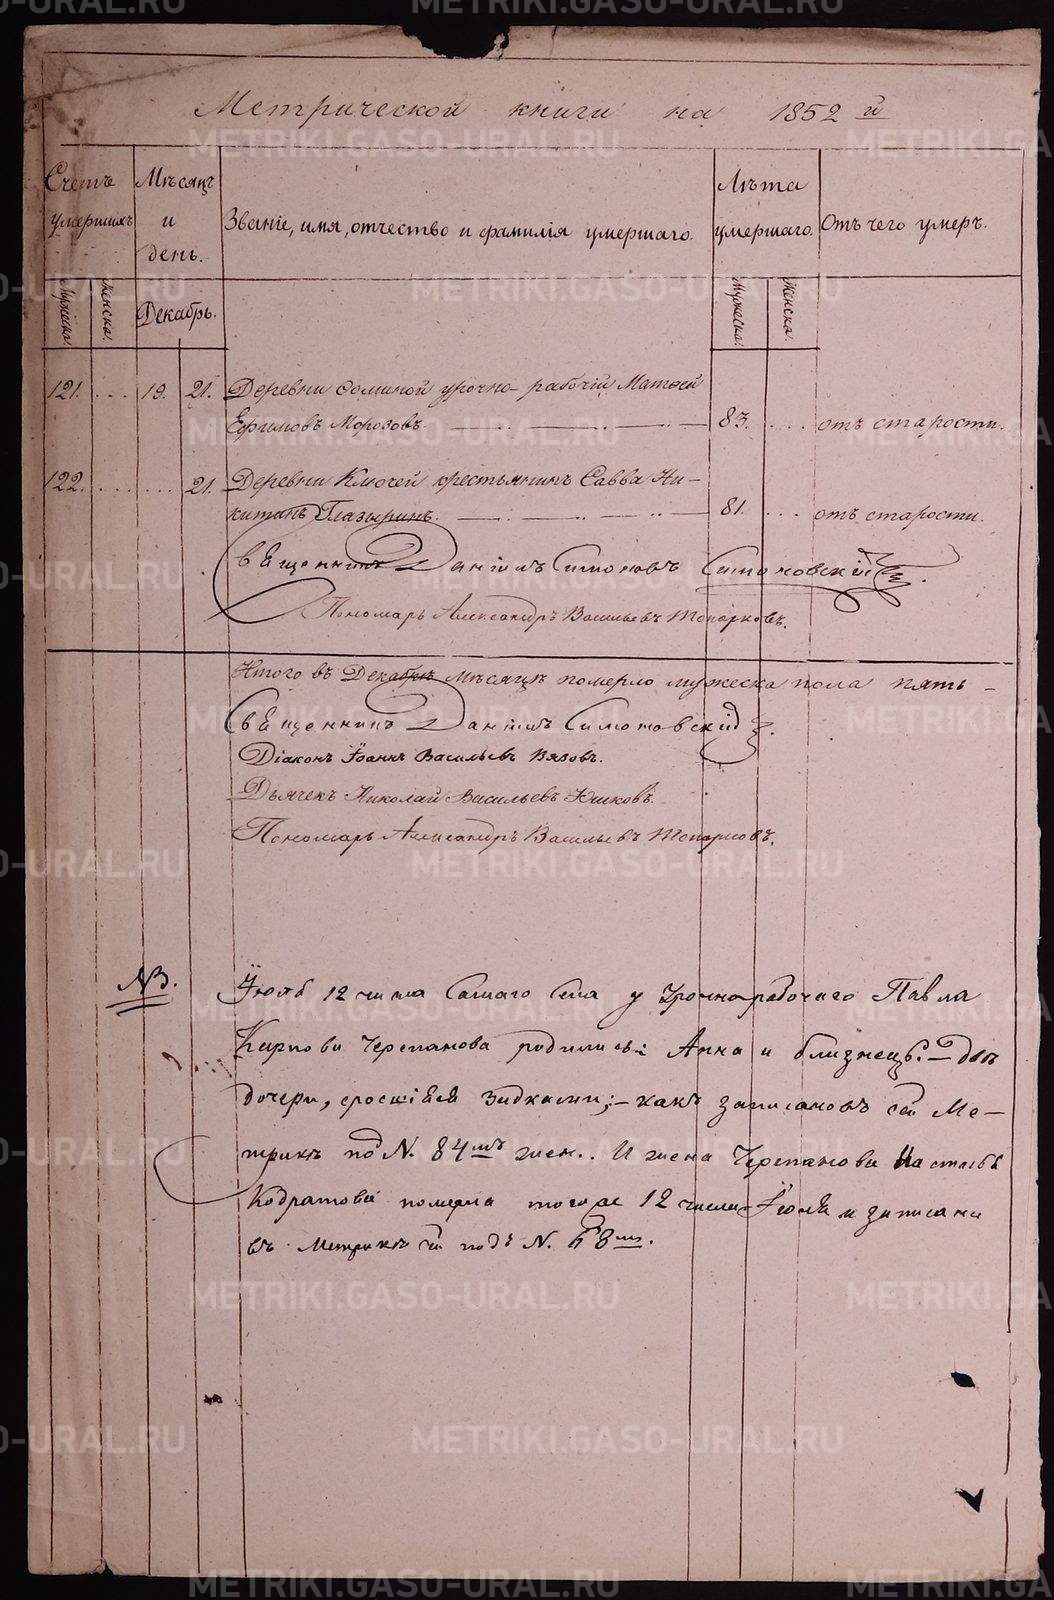 Метрической книги на 1852й
Счетъ умершихъ
Мѣсяцъ и день.
Званіе, имя, отчество и фамилія умершаго.
Лѣта умершаго.
Отъ чего умеръ.
Мужеска.
Женска.
Декабрь.
Мужеска.
Женска.
121. ... 19. 21. Деревни Фоминой урочно-рабочій Матѳей
Ефимовъ Морозовъ. 83. ... отъ старости.
122. ... ... 21. Деревни Ключей крестьянинъ Савва Ни-
китинъ Глазыринъ. 81. ... отъ старости.
Священникъ Даніилъ Симоновъ Симоновскій
Пономарь Александръ Васильевъ Топорковъ.
Итого въ Декабрѣ мѣсяцѣ померло мужеска пола пять -
Священникъ Даніилъ Симоновскій
Діаконъ Іоаннъ Васильевъ Вязовъ.
Дьячекъ Николай Васильевъ Юшковъ.
Пономарь Александръ Васильевъ Топорковъ.
NB. 12 числа Самаго Села у Урочнорабочаго Павла
Карпова Черепанова родились: Анна и близнецъ. двѣ
дочери, сросшіяся задками; - какъ записано въ сей Ме-
трикѣ под N. 84мъ жен.. И жена Черепанова Настасья
Кодратова померла того же 12 числа и записана
въ Метрикѣ сей подъ N. 68мъ.
METRIKI.GASO-URAL.RU